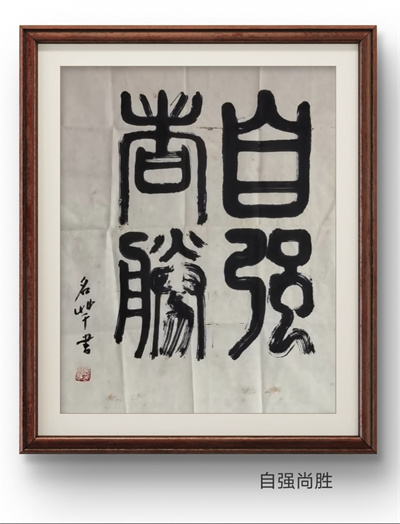 自强
尚勝
名苹書
自强尚胜